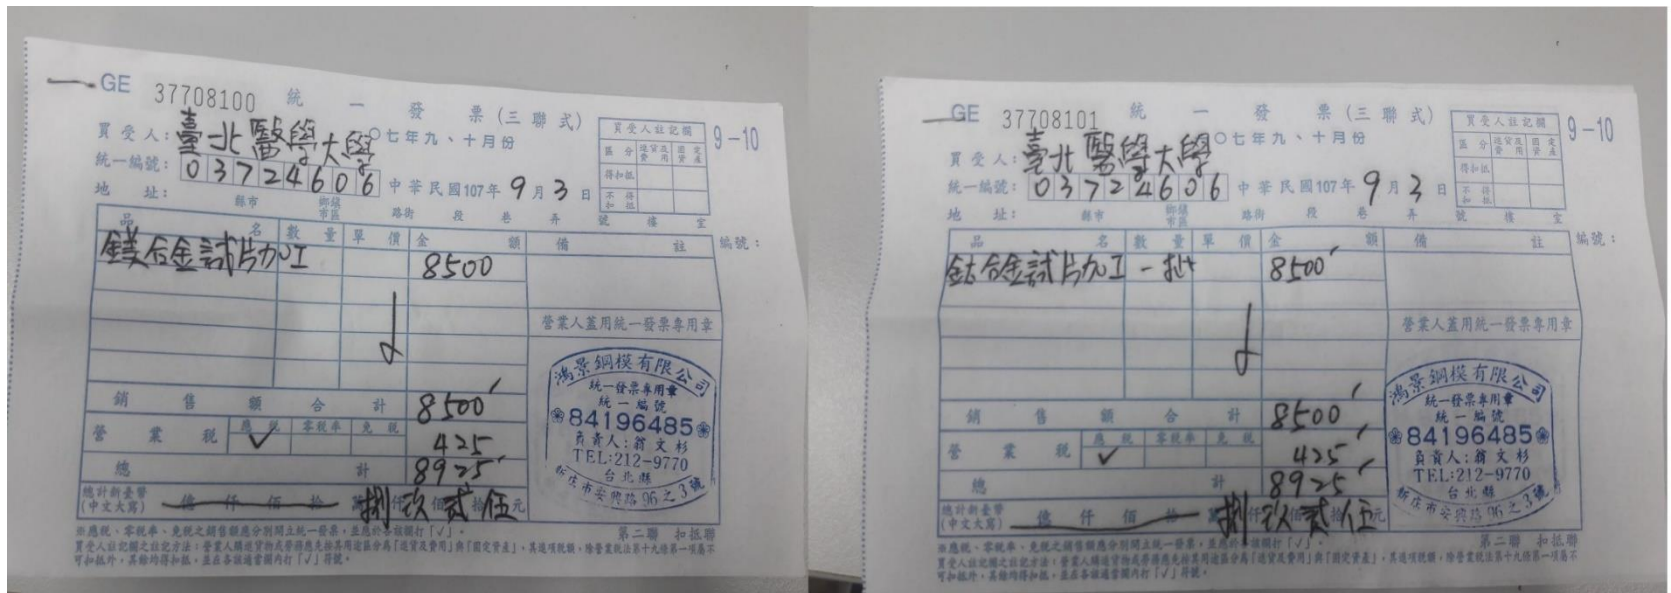 GE 37708100 統一發票(三聯式)
買受人:臺北醫學大學 〇七年九、十月份
統一編號:03724606 中華民國107年9月3日
地址: 縣市 鄉鎮市區 路街 段 巷 弄 號 樓 室
買受人註記欄
區分 進貨及費用 固定資產
得扣抵
不得扣抵
9-10
品名 數量 單價 金額 備註 編號:
鎂合金試片加工 8500
營業人蓋用統一發票專用章
銷售額合計 8500
營業稅 應稅 ✓ 零稅率 免稅 425
總計 8925
總計新臺幣(中文大寫) 億仟佰拾萬捌仟玖佰貳拾伍元
鴻景鋼模有限公司
統一發票專用章
統一編號
84196485
負責人:翁文杉
TEL:212-9770
台北縣
新庄市安興路96之3號
第二聯 扣抵聯
※應稅、零稅率、免稅之銷售額應分別開立統一發票,並應於各該欄打「√」。
買受人註記欄之註記方法:營業人購進貨物或勞務應先按其用途區分為「進貨及費用」與「固定資產」,其進項稅額,除營業稅法第十九條第一項屬不
可扣抵外,其餘均得扣抵,並在各該適當欄內打「√」符號。
GE 37708101 統一發票(三聯式)
買受人:臺北醫學大學 〇七年九、十月份
統一編號:03724606 中華民國107年9月3日
地址: 縣市 鄉鎮市區 路街 段 巷 弄 號 樓 室
買受人註記欄
區分 進貨及費用 固定資產
得扣抵
不得扣抵
9-10
品名 數量 單價 金額 備註 編號:
鈦合金試片加工 一批 8500
營業人蓋用統一發票專用章
銷售額合計 8500
營業稅 應稅 ✓ 零稅率 免稅 425
總計 8925
總計新臺幣(中文大寫) 億仟佰拾萬捌仟玖佰貳拾伍元
鴻景鋼模有限公司
統一發票專用章
統一編號
84196485
負責人:翁文杉
TEL:212-9770
台北縣
新庄市安興路96之3號
第二聯 扣抵聯
※應稅、零稅率、免稅之銷售額應分別開立統一發票,並應於各該欄打「√」。
買受人註記欄之註記方法:營業人購進貨物或勞務應先按其用途區分為「進貨及費用」與「固定資產」,其進項稅額,除營業稅法第十九條第一項屬不
可扣抵外,其餘均得扣抵,並在各該適當欄內打「√」符號。